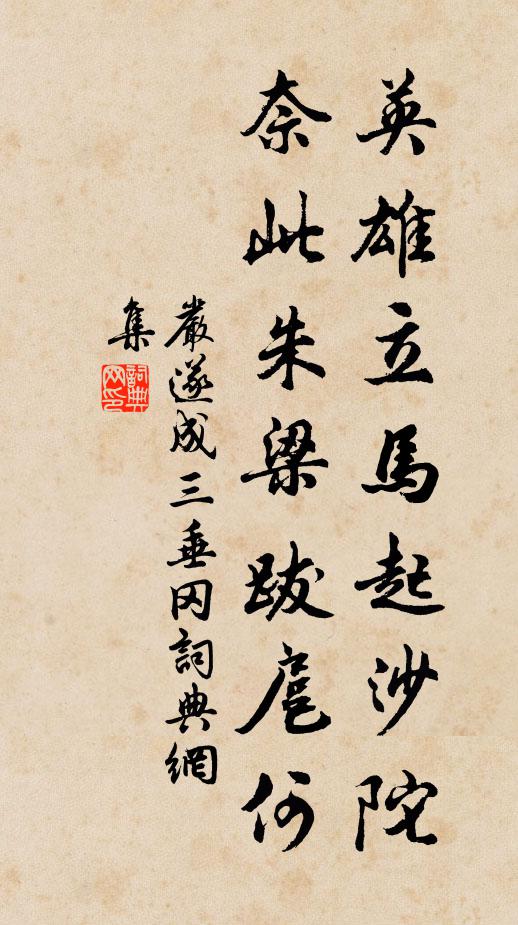 英雄立馬起沙陀
奈此朱梁跋扈何
嚴遂成三垂冈詞典網
集
詞典网印